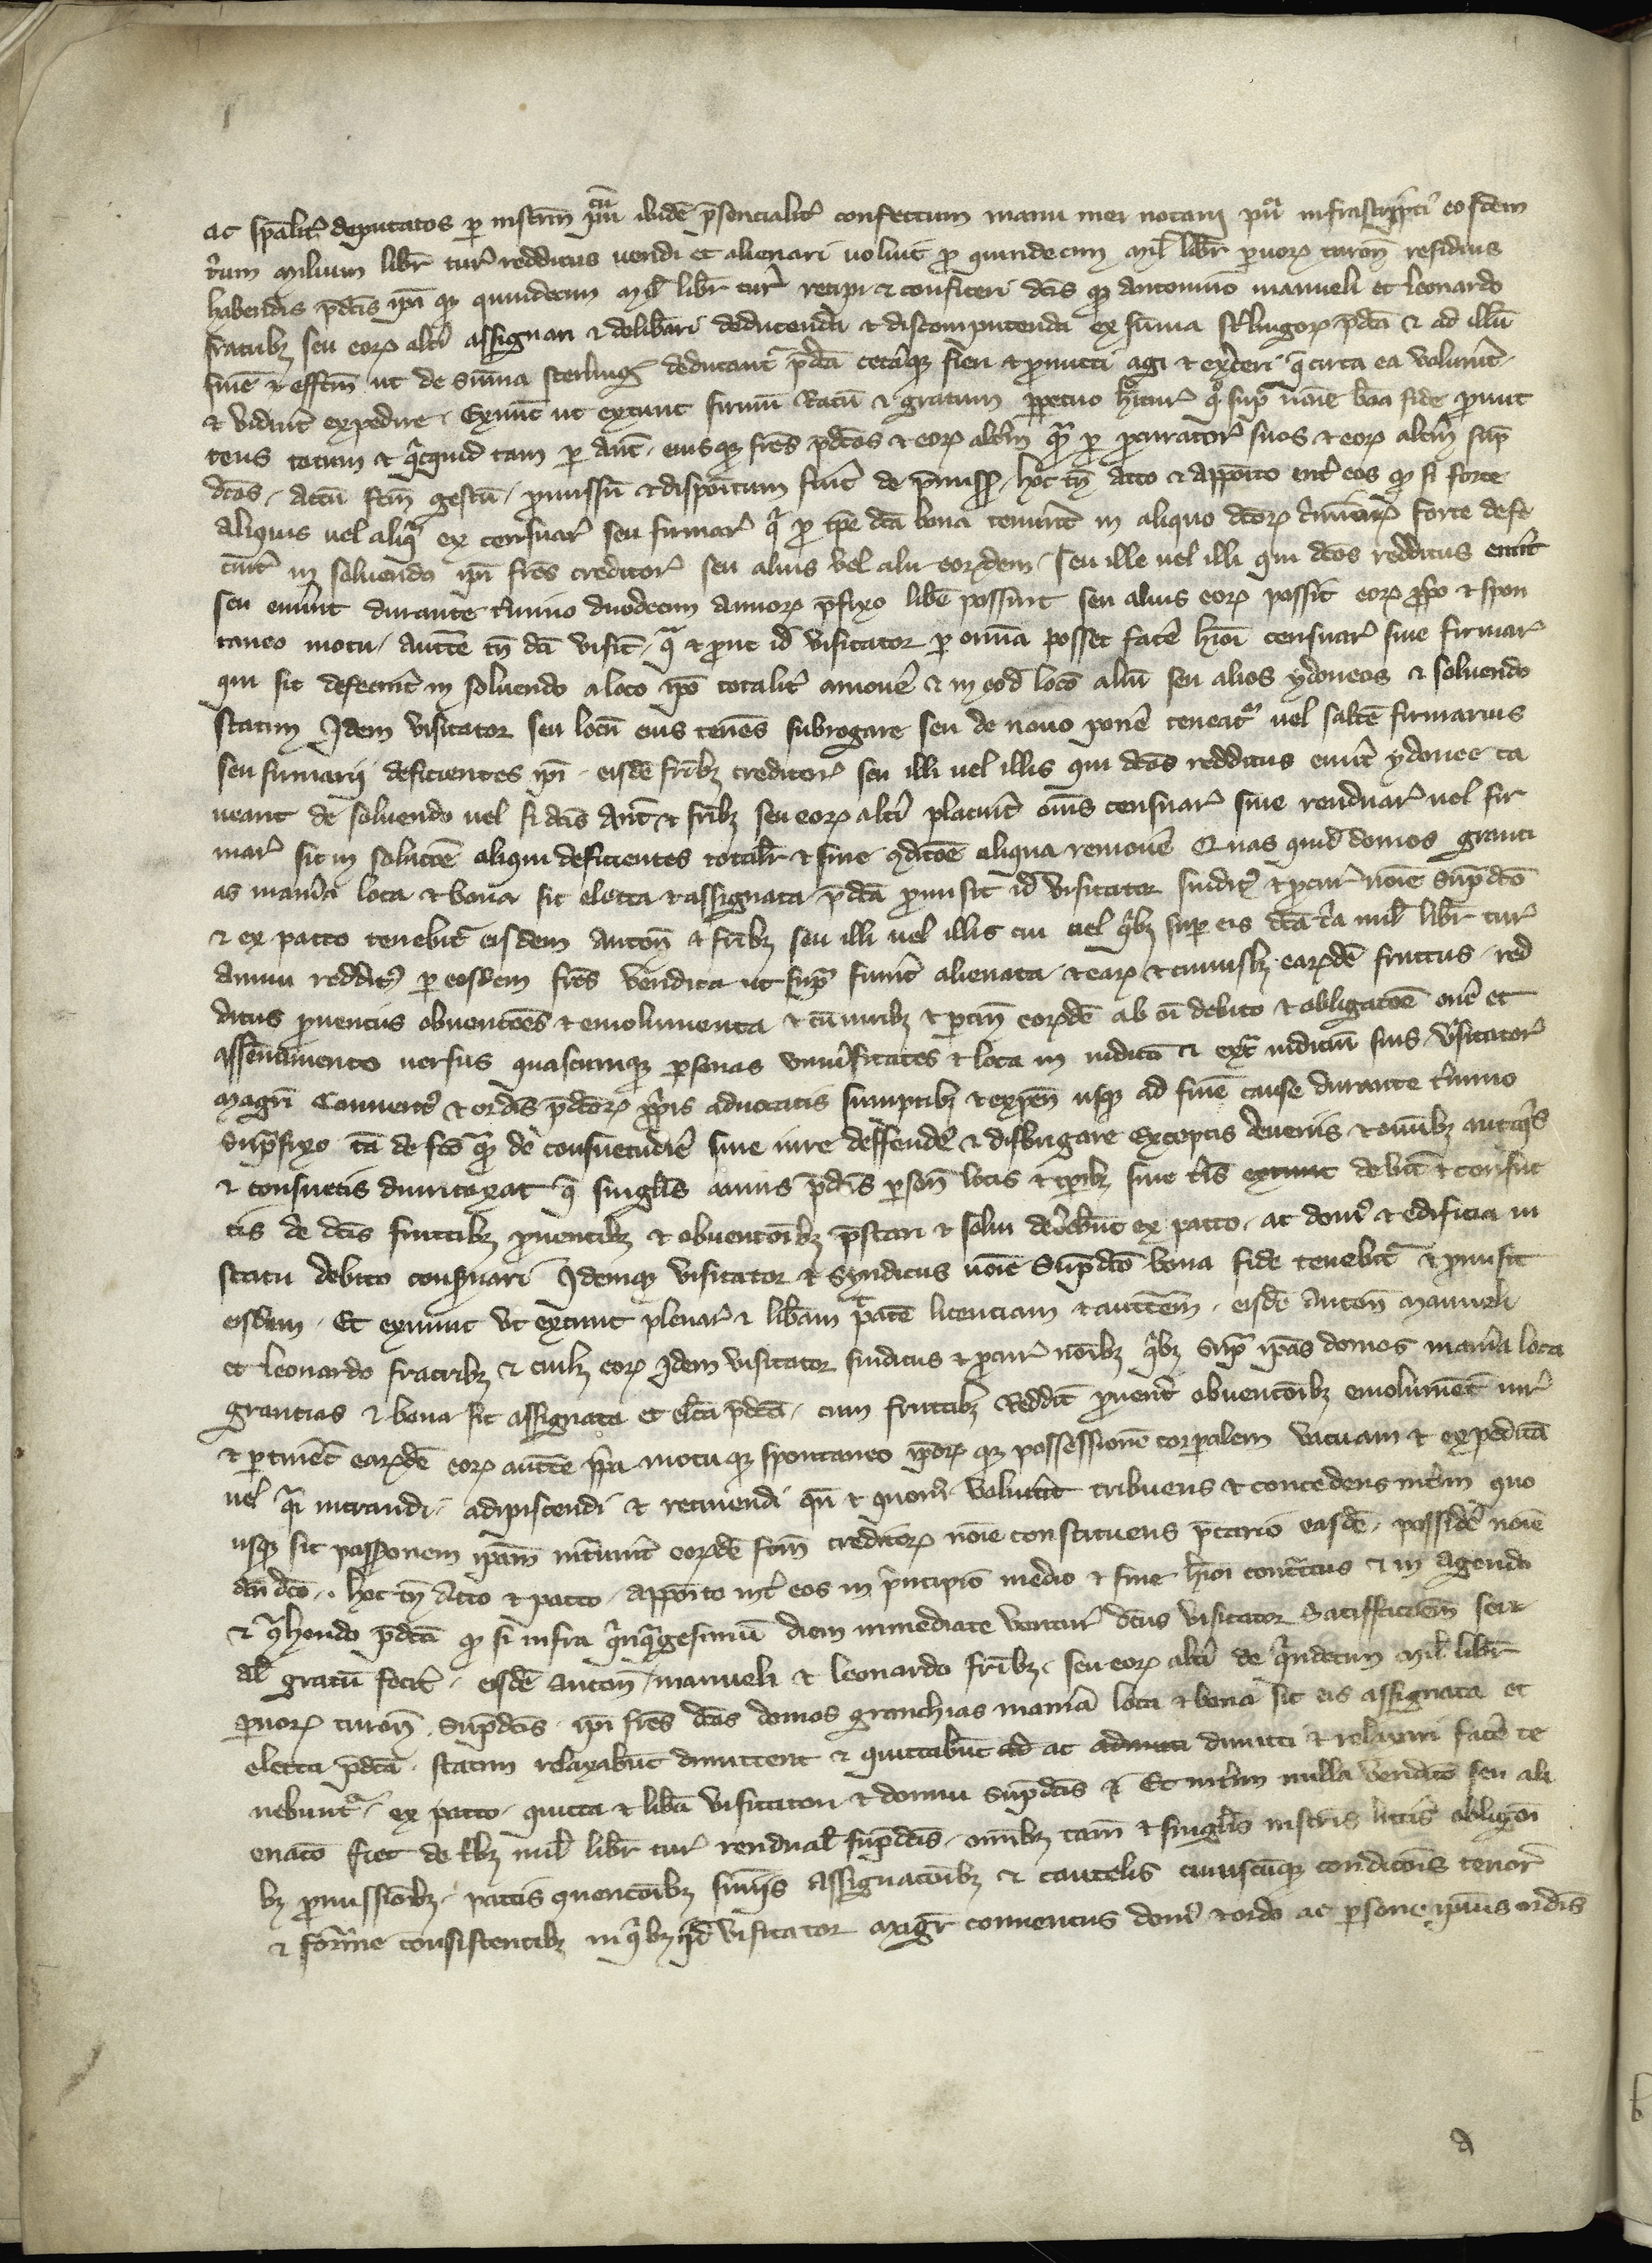 ac spālit̉ deputatos p instrm̄ pu͞m ibidē p̄sencialit̉ confectum manu mei notarij pu͞r infrascripti eosdem
t̉um milium libr̄ tur̉ redditus uendi et alienari uoluit p quindecim mil̄ libr̄ puorꝝ turon̄ residuis
habendis p̄dc̄is ip̄i qꝫ quindecim mil̄ libr̄ tur̉ recipi ⁊ confiteri dc̄is qꝫ antonino manueli et leonardo
fratribꝫ seu eorꝝ alt̉i assignari ⁊ delib̄ari deducenda ⁊ discomputenda ex sūma st̉lingorꝝ p̄dc̄a ⁊ ad illū
finē ⁊ effc̄m ut de sūma sterling̉ deducant̉ p̄dc̄a cet̉aqꝫ fieri ⁊ pmitti agi ⁊ ex̉ceri q̄ circa ea volu̅it
⁊ vid̉int expedire. Exnūc ut extunc firmū Ratū ⁊ gratum ppetuo h̉itur̉ q̊ sup̄ noīe bōa fide pmit
tens totum ⁊ q̉cquid tam p Ant̄. eiusqꝫ frēs p̄dc̄os ⁊ eorꝝ alt̉m q̄ p pcurator̉ suos ⁊ eorꝝ alt̉m sup̄
dc̄os. actū fc̄m gestū. pmissū ⁊ dispoītum fu̅it de p̄missꝭ. hoc tn̄ acto ⁊ appōito int̉ eos qꝫ si forte
aliquis uel aliq̉ ex censuar̉ seu firmar̉ q̉ p tp̄e dc̄a bona tenu̅int in aliquo dc̄orꝝ t̉minorꝝ forte defe
c̉int in soluendo ip̄i frēs creditor̉ seu alius vel alii eorꝝdem. seu ille uel illi qui dc̄os redditus em̉it
seu em̉int durante t̉mino duodecim annorꝝ p̄fixo lib̄e possint seu alius eorꝝ possit eorꝝ p̄po ⁊ spon
taneo motu. auctē tn̄ dc̄i visit̄. q̄ ⁊ put id̄ visitator p omīa posset fac̉e hmōi censuar̉ siue firmar̉
qui sic defec̉int in soluendo a loco ip̄o totalit̉ amou̅e ⁊ in eod̄ loco aliū seu alios ydoneos ⁊ soluendo
statim Idem visitator seu locū eius tenēs subrogare seu de nouo pon̄e teneat̉ uel saltē firmarius
seu firmarii deficientes ip̄i. eisdē frībꝫ creditor̉ seu illi uel illis qui dc̄os redditus em̉int ydonee ca
ueant de soluendo uel si dc̄is Ant̄ ⁊ frībꝫ seu eorꝝ alt̉i placu̅it om̄s censuar̉ siue renduar̉ uel fir
mar̉ sic in soluc̄oe aliqui deficientes totalit̉ ⁊ sine 9dic̄oe aliqua remou̅e Quas quid̄ domos granci
as man̉ia loca ⁊ bona sic electa ⁊ assignata p̄dc̄a pmisit id̄ visitator sindic̉ ⁊ pcur̉ noīe sup̄dc̄o
⁊ ex pacto tenebit̉ eisdem anton̄ ⁊ frībꝫ seu illi uel illis cui uel q̉bꝫ sup eis dc̄a t̉a mil̄ libr̄ tur̉
annui reddit̉ p eosdem frēs vendita ut sup̄ fu̅int alienata. ⁊ earꝝ ⁊ cuiuslꝫ earꝝdē fructus. red
ditus puentus obuentōes ⁊ emolumenta ⁊ cū iuribꝫ ⁊ ptīn eorꝝdē ab oī debito ⁊ obligac̄oe on̉e et
assenamento uersus quascumqꝫ psonas uniu̅sitates ⁊ loca in iudicō ⁊ ext̉ iudiciū suis visitator̉
magr̄i Conuent̉ ⁊ ordīs p̄dc̄orꝝ pp̄is aduocatis sumptibꝫ ⁊ expen̄ usqꝫ ad finē cause durante t̉mino
sup̄fixo tā de fc̄o q̄ꝫ de consuetudīe siue iure deffende̅ ⁊ disbrigare Exceptis deueriis ⁊ onibꝫ antiq̉s
⁊ consuetis dumtaxat q̄ singlis̄ annis p̄dc̄is pson̄ locis ⁊ tp̄ibꝫ siue t̉īs extunc debit̄ ⁊ consue
tis de dc̄is fructibꝫ puentibꝫ ⁊ obuentōibꝫ p̄stari ⁊ solui deb̄ebūt ex pacto. ac dom̉ ⁊ edificia in
statu debito conseruari Idemqꝫ visitator ⁊ syndicus noīe sup̄dc̄o bona fide tenebit̉ ⁊ pmisit
eisdem. Et exnunc ut extunc plenar̉ ⁊ lib̄am p̄atē licenciam ⁊ auctem̄. eisdē anton̄ manueli
et leonardo fratribꝫ ⁊ cuilꝫ eorꝝ Idem visitator sindicus ⁊ pcur̉ noībꝫ q̉bꝫ sup̄ ip̄as domos man̉ia loca
grancias ⁊ bona sic assignata et elc̄a p̄dc̄a. cum fructibꝫ Reddit̄ puent̄ obuentōibꝫ emolument̄ iur̉
⁊ ptinēt earꝝdē eorꝝ aucte pp̄a motuqꝫ spontaneo ip̄orꝝ qꝫ possessionē corpalem vacuam ⁊ expeditā
uel q̉i intrandi. adipiscendi ⁊ retinendi qn̄ ⁊ quom̉ uolu̅int tribuens ⁊ concedens int̉im quo
usqꝫ sic possōonem ip̄am int̉u̅int eorꝝdē frm̄ creditorꝝ noīe constituens p̄cario easdē. possid̉e noīe
an̄ dc̄o. hoc tn̄ Acto ⁊ pacto. appōito int̉ eos in p̉ncipio medio ⁊ fine hmōi cont̉ctus ⁊ in agendo
⁊ 9t̉hendo p̄dc̄a qꝫ si infra q̉nq̄gesimū diem inmediate ventur̉ dc̄us visitator Satisfac̄oem seu
al̄ gratū fec̉it. eisdē anton̄ manueli ⁊ leonardo frībꝫ. seu eorꝝ alt̉i de q̉ndecim mil̄ libr̄
puorꝝ turon̄. sup̄dc̄is. ip̄i frēs dc̄as domos granchias man̉ia loca ⁊ bona sic eis assignata et
electa p̄dc̄a. statim relaxabūt dimittent ⁊ quittabūt ac dimitti ⁊ relaxari fac̉e te
nebunt̉. ex pacto. quitta ⁊ lib̄a visitatori ⁊ domui sup̄dc̄is Et int̉im nulla vendic̄o seu ali
enac̄o fiet de t̉bꝫ mil̄ libr̄ tur̉ rendual̄ sup̄dc̄is. omībꝫ tam̄ ⁊ singlis̄ instr̄is litt̉is obligōi
bꝫ pmissiōibꝫ. pactis 9uentōibꝫ firmis assignatōibꝫ ⁊ cautelis cuiuscūqꝫ condic̄ōis tenor̉
⁊ forme consistentibꝫ in q̉bꝫ id̄ visitator magr̄ conuentus dom̉ ⁊ ordo ac psone ip̄ius ordīs